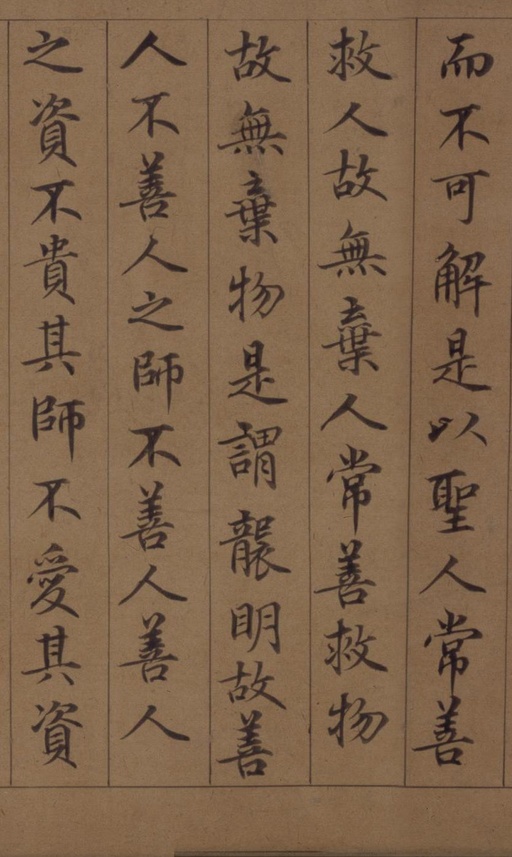 而不可解是以聖人常善
救人故無棄人常善救物
故無棄物是謂襲明故善
人不善人之師不善人善人
之資不貴其師不愛其資